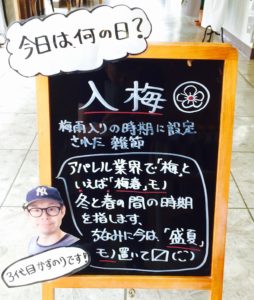 今日は、何の日?
入梅
梅雨入りの時期に設定
された雑節
アパレル業界で「梅」と
いえば"梅春"モノ
冬と春の間の時期
を指します。
ちなみに今は、「盛夏」
モノ置いて〼(ﾟ)
3代目かずのりです!